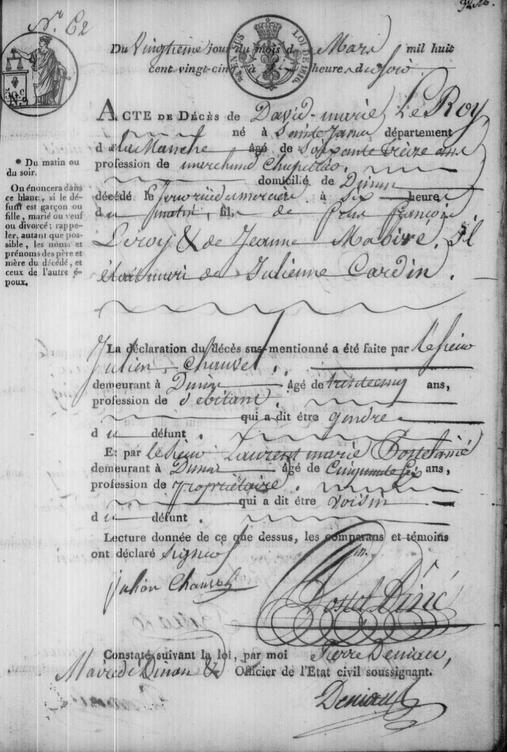 N.º 62
Du Vingtième jour du mois de Mars mil huit
cent vingt-cinq à heures du soir
ACTE DE DÉCÈS de David-marie Le Roy
né à Sainte Jame département
d e la Manche âgé de Soixante treize ans
profession de marchand Chapellier
domicilié de Dinan
décédé le jour à six heure
du matin, fils de françois
Leroy & de Jeanne . Il
était mari de Julienne Cardin.
* Du matin ou
du soir.
On énoncera dans
ce blanc, si le dé-
funt est garçon ou
fille, marié ou veuf
ou divorcé; rappe-
ler, autant que pos-
sible, les noms et
prénoms des père et
mère du décédé, et
ceux de l'autre é-
poux.
La déclaration du décès sus-mentionné a été faite par le sieur
Julien Chauvel
demeurant à Dinan âgé de trente cinq ans,
profession de débitant
qui a dit être gendre
d u défunt.
Et par le sieur Laurent marie
demeurant à Dinan âgé de Cinquante six ans,
profession de propriétaire
qui a dit être voisin
d u défunt.
Lecture donnée de ce que dessus, les comparans et témoins
ont déclaré signer
Julien Chauvel
Constaté suivant la loi, par moi Pierre Deniau,
Maire de Dinan & Officier de l'Etat civil soussignant.
Deniau